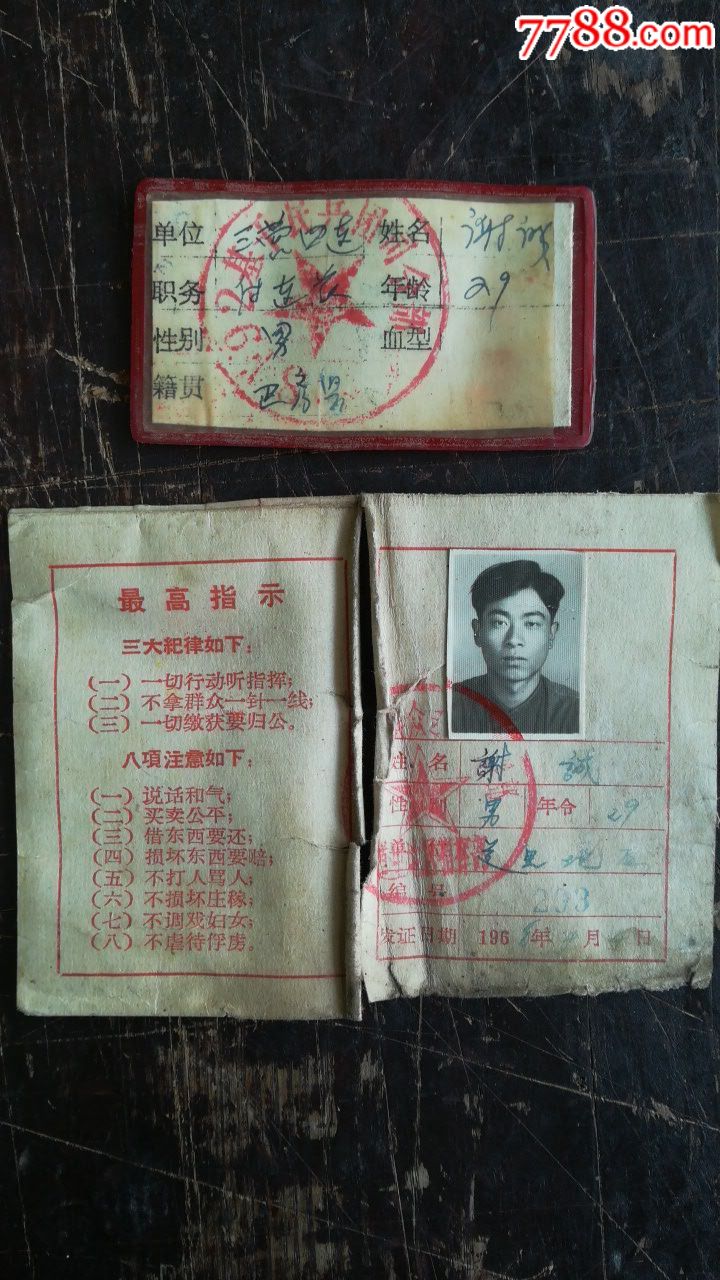 7788.com
单位 三营四连 姓名 谢诚
职务 付连长 年龄 29
性别 男 血型
籍贯
最高指示
三大紀律如下：
（一）一切行动听指挥；
（二）不拿群众一针一线；
（三）一切缴获要归公。
八項注意如下：
（一）说话和气；
（二）买卖公平；
（三）借东西要还；
（四）损坏东西要赔；
（五）不打人骂人；
（六）不损坏庄稼；
（七）不调戏妇女；
（八）不虐待俘虏。
姓名 謝誠
性别 男 年令 29
单
编号 233
发证日期 196 年 月 日